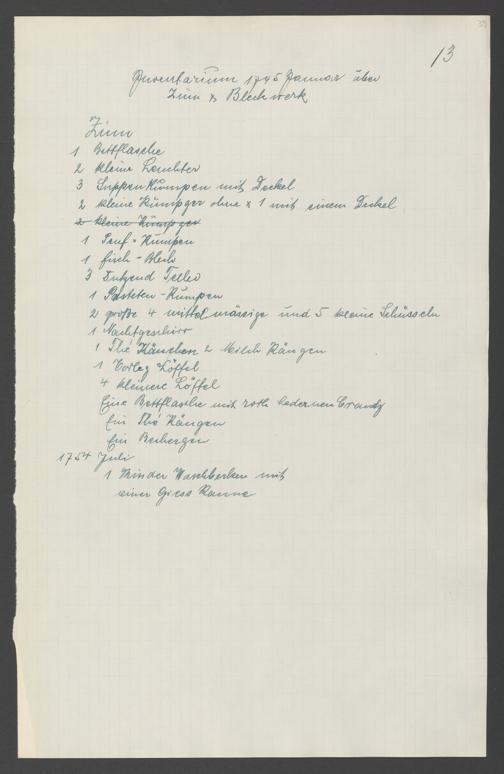 13
Inventarium 1745 Januar über
Zinn & Blechwerk
Zinn
1 Bettflasche
2 kleine Leuchter
3 Suppen Kümpen mit Deckel
2 kleine Kümpger ohne & 1 mit einem Deckel
2 kleine Kümpger
1 Senf-Kümpen
1 fisch-Blech
3 Dutzend Teller
1 Pasteten-Kümpen
2 große 4 mittelmässige und 5 kleine Schüsseln
1 Nachtgeschirr
1 Thé Känchen 2 Milch Kängen
1 Vorleg Löffel
4 kleinere Löffel
Eine Bettflasche mit roth ledernen
Ein Thé Kängen
Ein
1754 Juli
1 Waschbecken mit
einer Giess Kanne